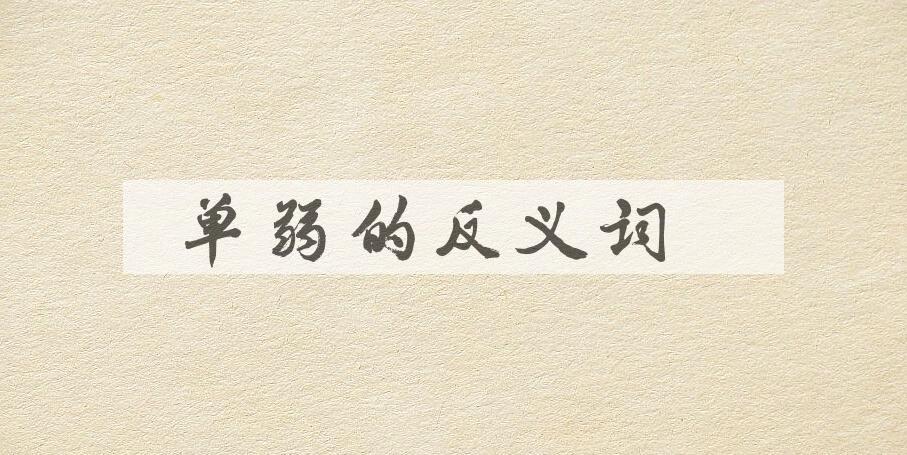 单弱的反义词